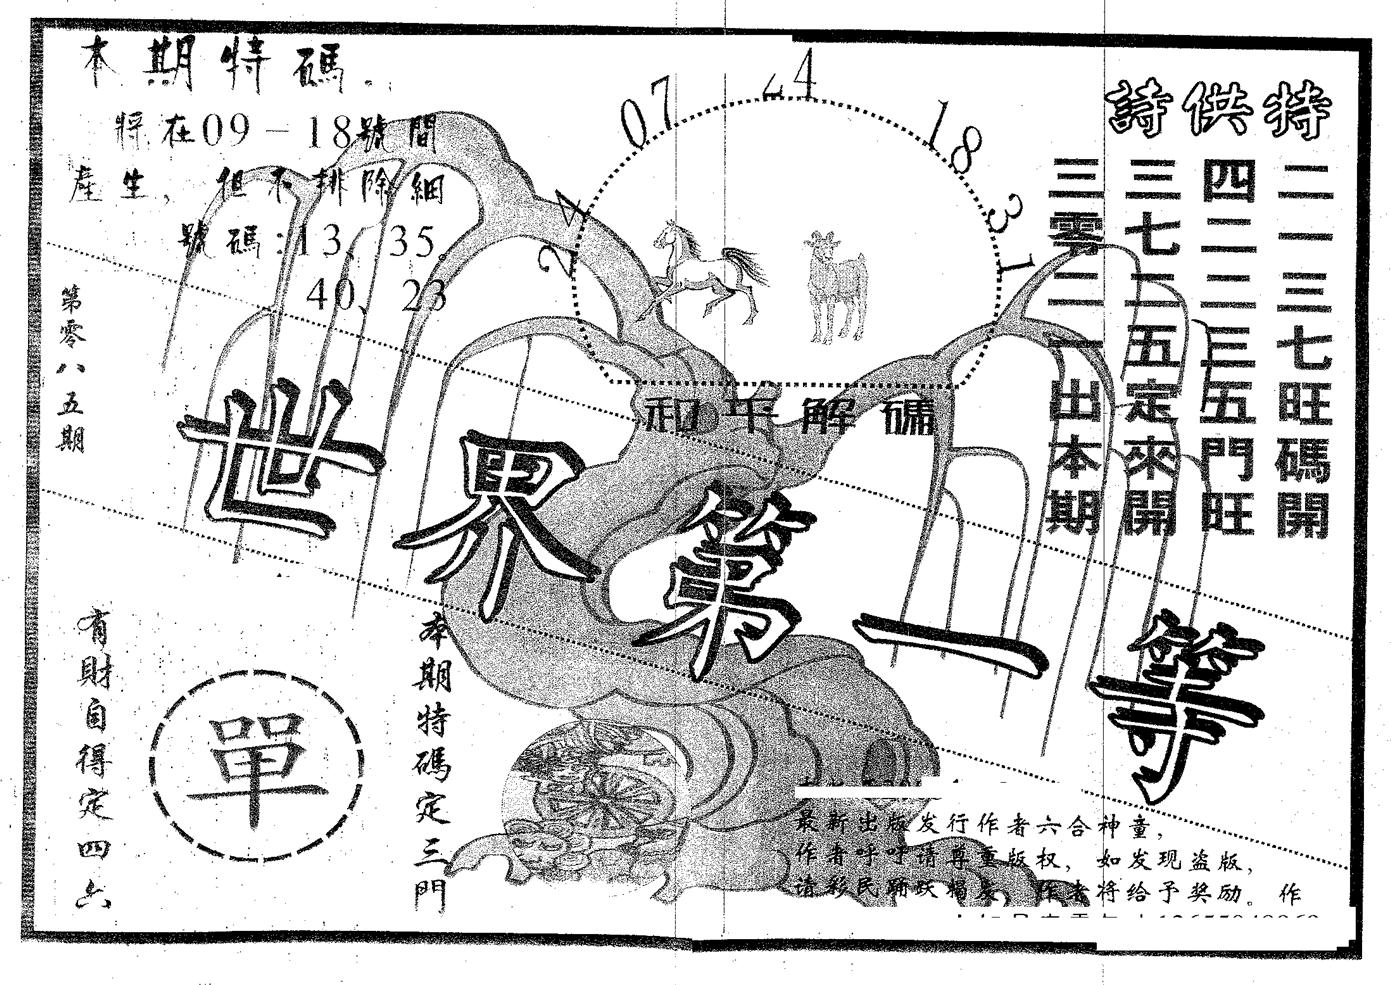 本期特碼
將在09－18號間
產生，但不排除細
號碼：13、35。
40、23
第零八五期
24
07
24
18
31
特供詩
二一三七旺碼開
四二二三五門旺
三七二五定來開
三零二一出本期
和平解碼
世界第一等
有財自得定四六
單
本期特碼定三門
最新出版发行作者六合神童，
作者呼吁请尊重版权，如发现盗版，
请彩民踊跃揭发，作者将给予奖励。作